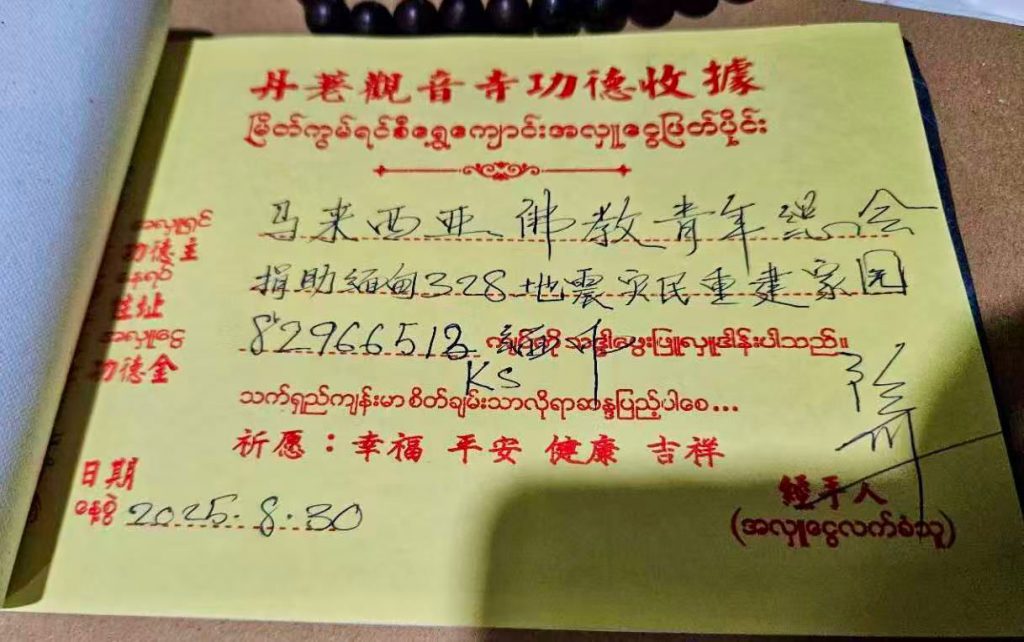 丹荖觀音寺功德收據
မြိတ်ကွမ်ရင်စီရွှေကျောင်းအလှူငွေဖြတ်ပိုင်း
အလှူရှင် 马来西亚佛教青年总会
功德主
နေရပ် 捐助缅甸328地震灾民重建家园
住址
အလှူငွေ 82966513 缅币 ကျပ်တို့ သဒ္ဓါဖွေးဖြူလှူဒါန်းပါသည်။
功德金 KS
သက်ရှည်ကျန်းမာ စိတ်ချမ်းသာလိုရာဆန္ဒပြည့်ပါစေ...
祈愿：幸福 平安 健康 吉祥
日期
နေ့စွဲ 2025.8.30
經手人
(အလှူငွေလက်ခံသူ)